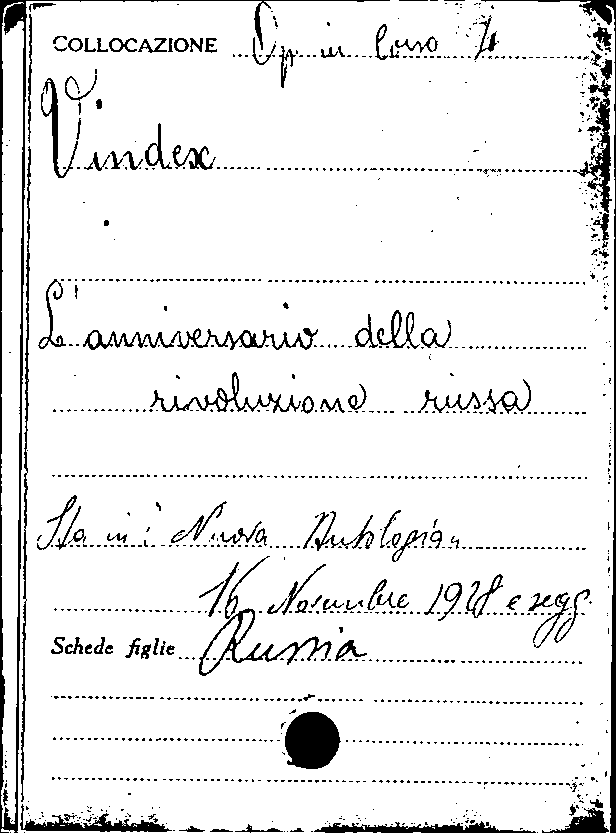 COLLOCAZIONE Op in Corso 71
Vindex
L'anniversario della
rivoluzione russa
Sta in: "Nuova Antologia"
16 Novembre 1928 e segg.
Schede figlie Russia